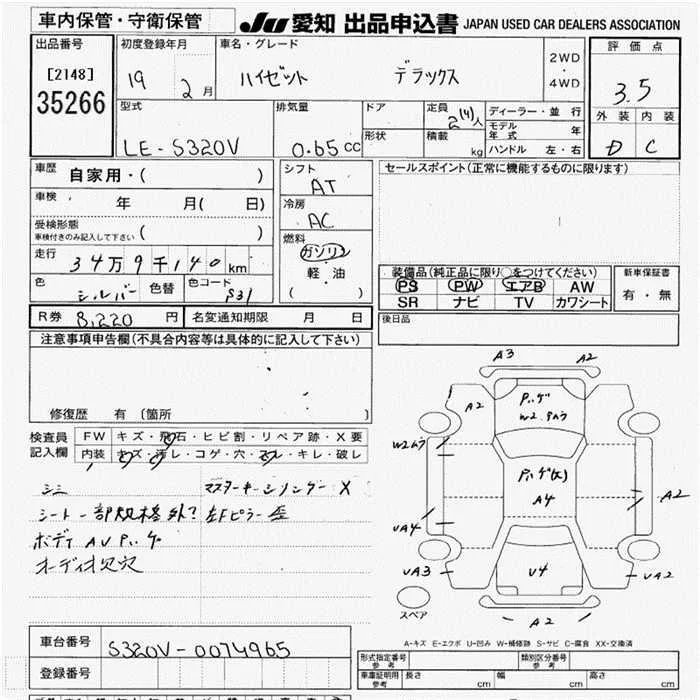 車内保管・守衛保管
JU 愛知 出品申込書 JAPAN USED CAR DEALERS ASSOCIATION
出品番号
[2148]
35266
初度登録年月
19 2月
車名・グレード
ハイゼット デラックス
2WD
・
4WD
評価点
3.5
外装 内装
D C
型式
LE-S320V
排気量
0.65 CC
ドア
形状
定員
2(4)人
積載
kg
ディーラー・並行
モデル年式 年
ハンドル 左・右
車歴 自家用・( )
車検 年 月( 日)
受検形態
車検付きのみ記入して下さい ( )
走行
34万9千140km
色
シルバー
色替
色コード
S31
シフト
AT
冷房
AC
燃料
ガソリン
軽・油
( )
セールスポイント(正常に機能するものに限ります)
装備品(純正品に限り○をつけてください)
PS PW エアB AW
SR ナビ TV カワシート
新車保証書
有・無
R券 8,220 円
名変通知期限 月 日
後日品
注意事項申告欄(不具合内容等は具体的に記入して下さい)
修復歴 有 〔箇所 〕
検査員
記入欄
FW キズ・飛石・ヒビ割・リペア跡・X要
内装 キズ・汚レ・コゲ・穴・スレ・キレ・破レ
シミ マスターキーシリンダー X
シート一部規格外? 左Fピラー歪
ボディ AUハゲ
オーディオ欠穴
A3 A2
A2
W2
A4
A2
UA4
UA3
U4
UA2
A2
スペア
A-キズ E-エクボ U-凹み W-補修跡 S-サビ C-腐食 XX-交換済
車台番号 S320V-0074965
登録番号
形式指定番号
参考
類別区分番号
参考
車庫証明用
参考
長さ cm 幅 cm 高さ cm